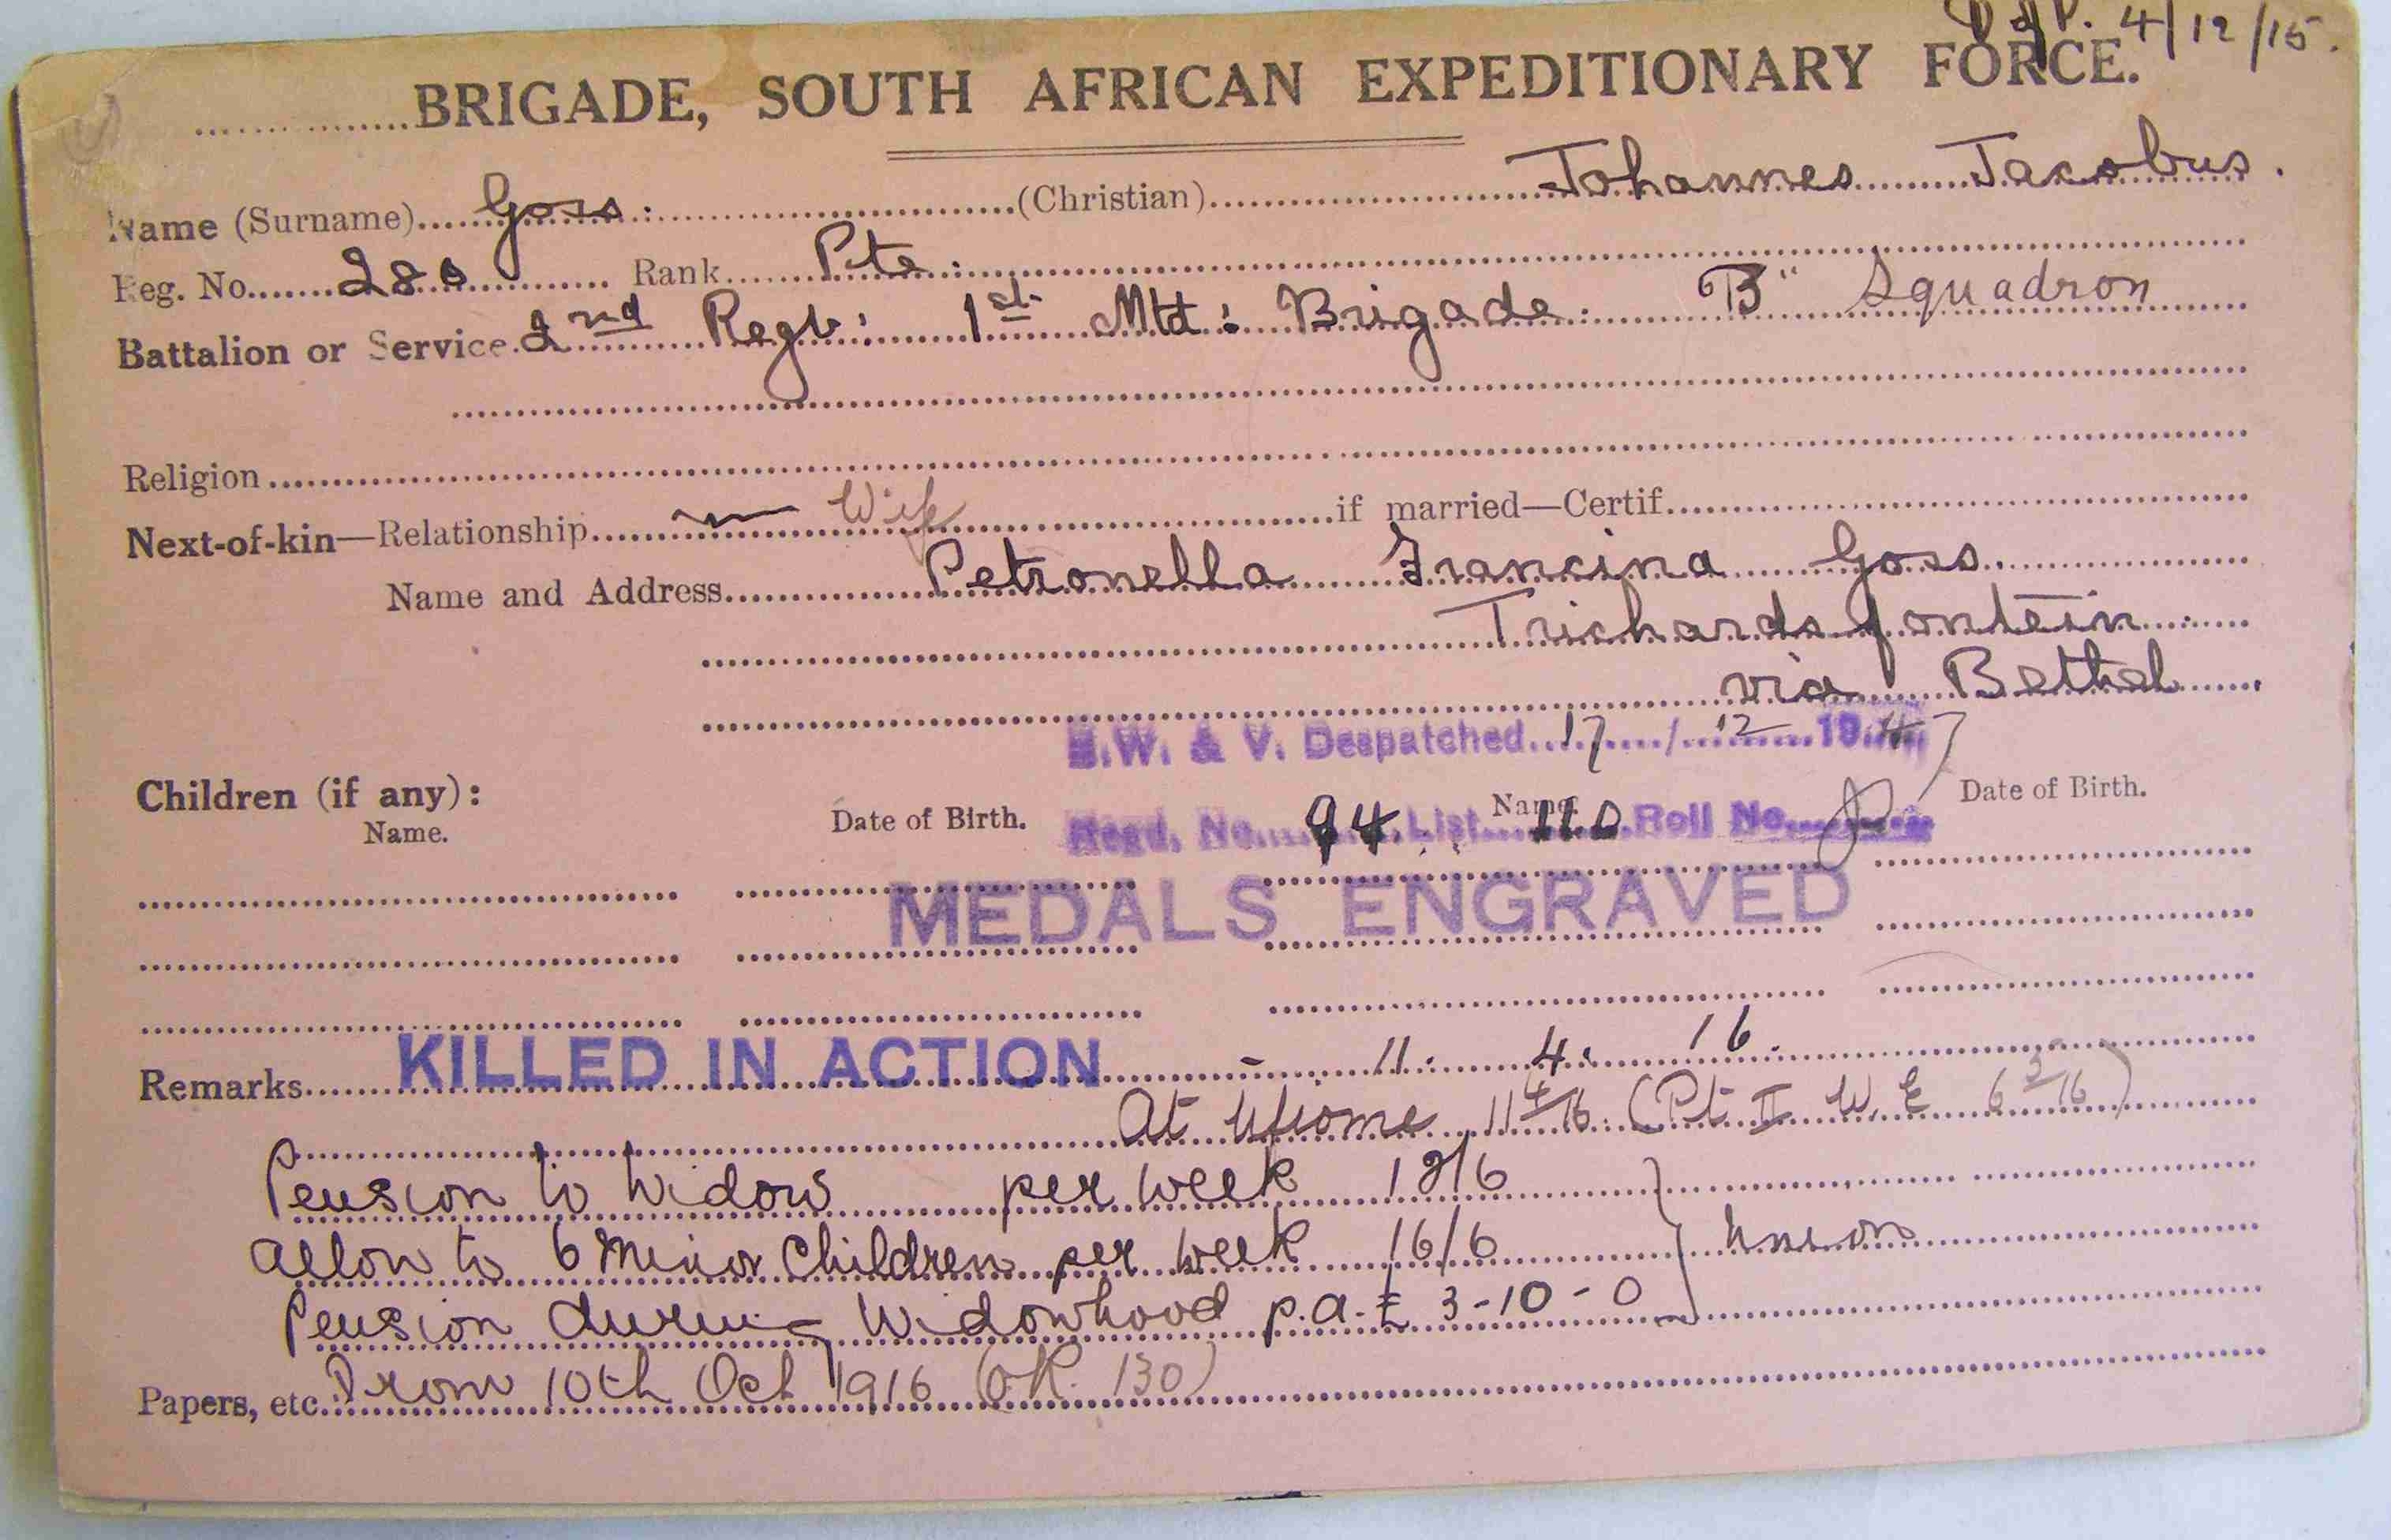 4/12/15.
BRIGADE, SOUTH AFRICAN EXPEDITIONARY FORCE.
Name (Surname) Goss: (Christian) Johannes Jacobus.
Reg. No. 280 Rank Pte:
Battalion or Service 2nd Regt: 1st Mtd: Brigade. "B" Squadron
Religion
Next-of-kin—Relationship Wife if married—Certif.
Name and Address Petronella Francina Goss.
Trichardsfontein
via Bethal
B.W. & V. Despatched 17/12 19
Children (if any):
Name. Date of Birth. Name. Date of Birth.
Regd. No. 94 List 110 Roll No.
MEDALS ENGRAVED
Remarks KILLED IN ACTION - 11. 4. 16.
At Ufiome 11/4/16. (Pt II W. E 6 3/16)
Pension to Widow per week 12/6
Allow to 6 Minor Children per week 16/6 Union
Pension during Widowhood p.a. £ 3-10-0
Papers, etc. From 10th Oct 1916 (O.R. 130)